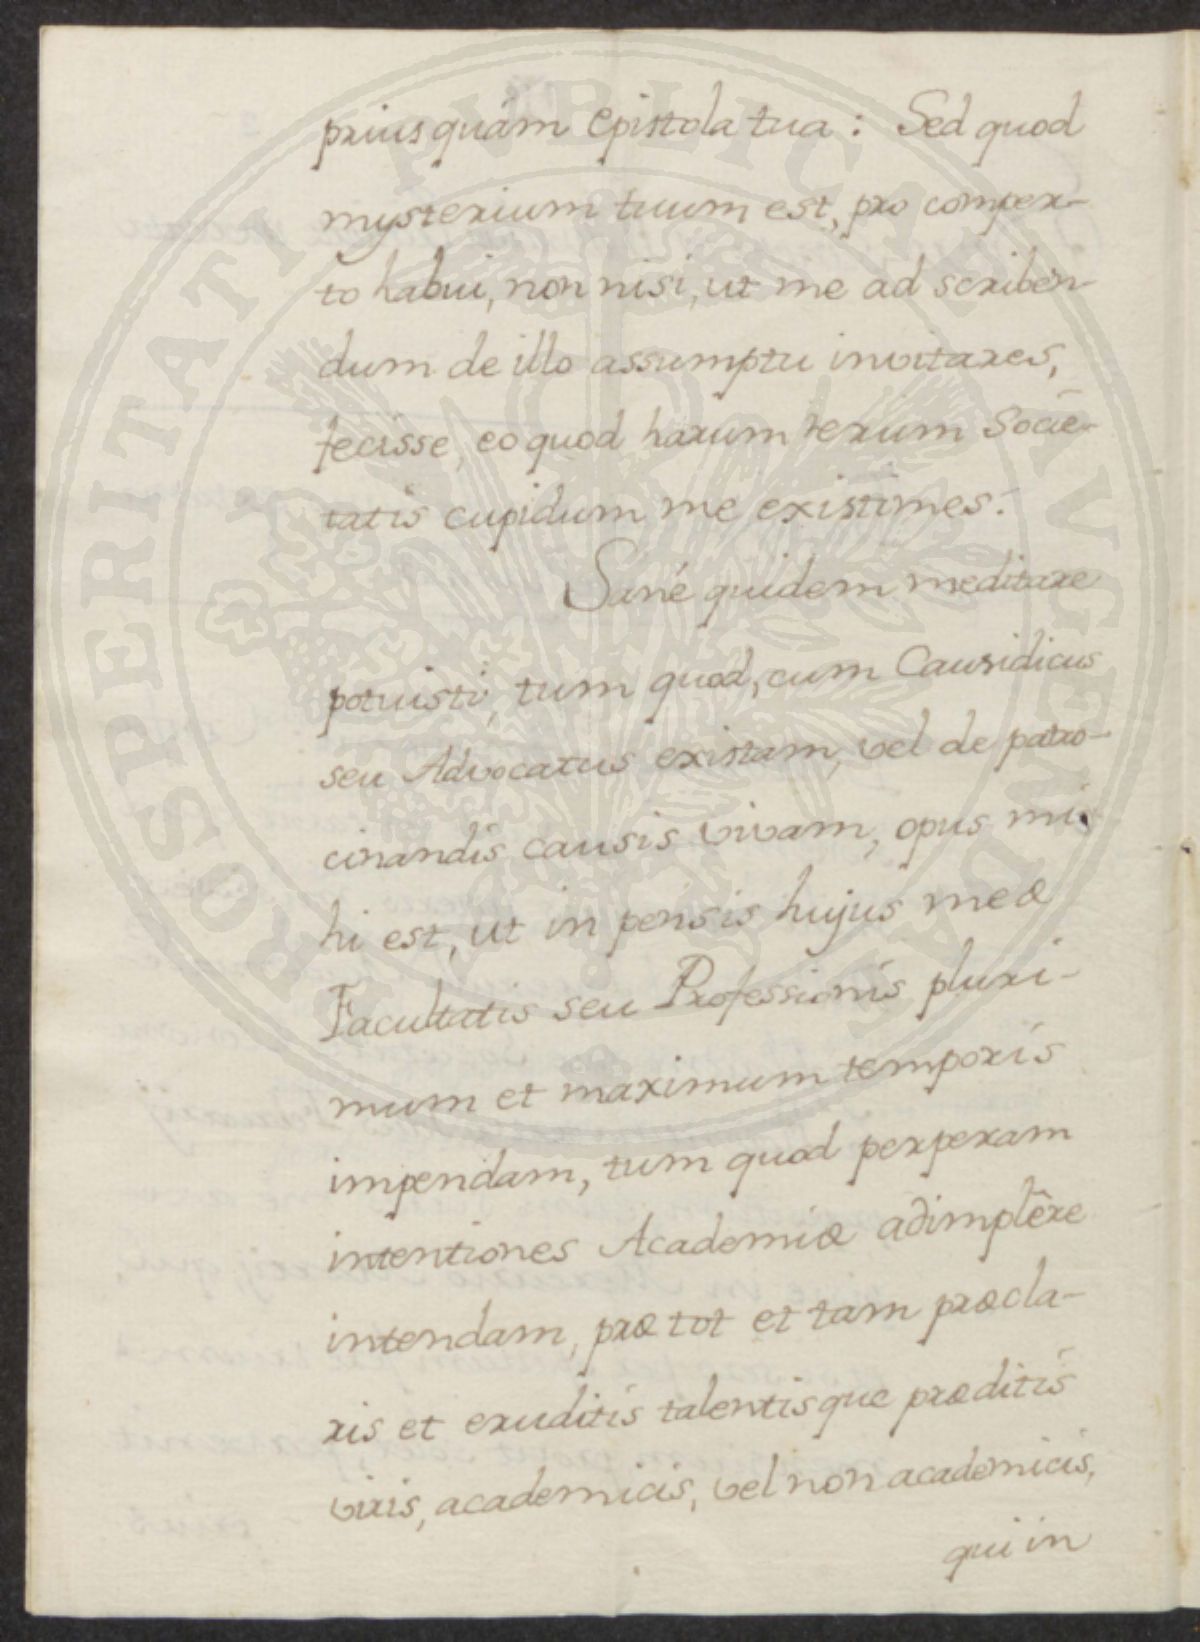 priusquám epistola tua: Sed quod
mysterium tuum est, pro comper-
to habui, non nisi, ut me ad scriben-
dum de illo assumptu invitares,
fecisse, eo quod harum rerum Socie-
tatis cupidum me existimes.
Sané quidem meditare
potuisti, tum quod, cum Causidicus
seu Advocatus existam, vel de patro-
cinandis causis vivam, opus mi-
hi est, ut in pensis hujus meæ
Facultatis seu Professionis pluri-
mum et maximum temporis
impendam, tum quod perperam
intentiones Academiæ adimplêre
intendam, præ tot et tam præcla-
ris et eruditis talentisque præditis
viris, academicis, vel non academicis,
qui in
PROSPERITATI PVBLICAE AVGENDAE